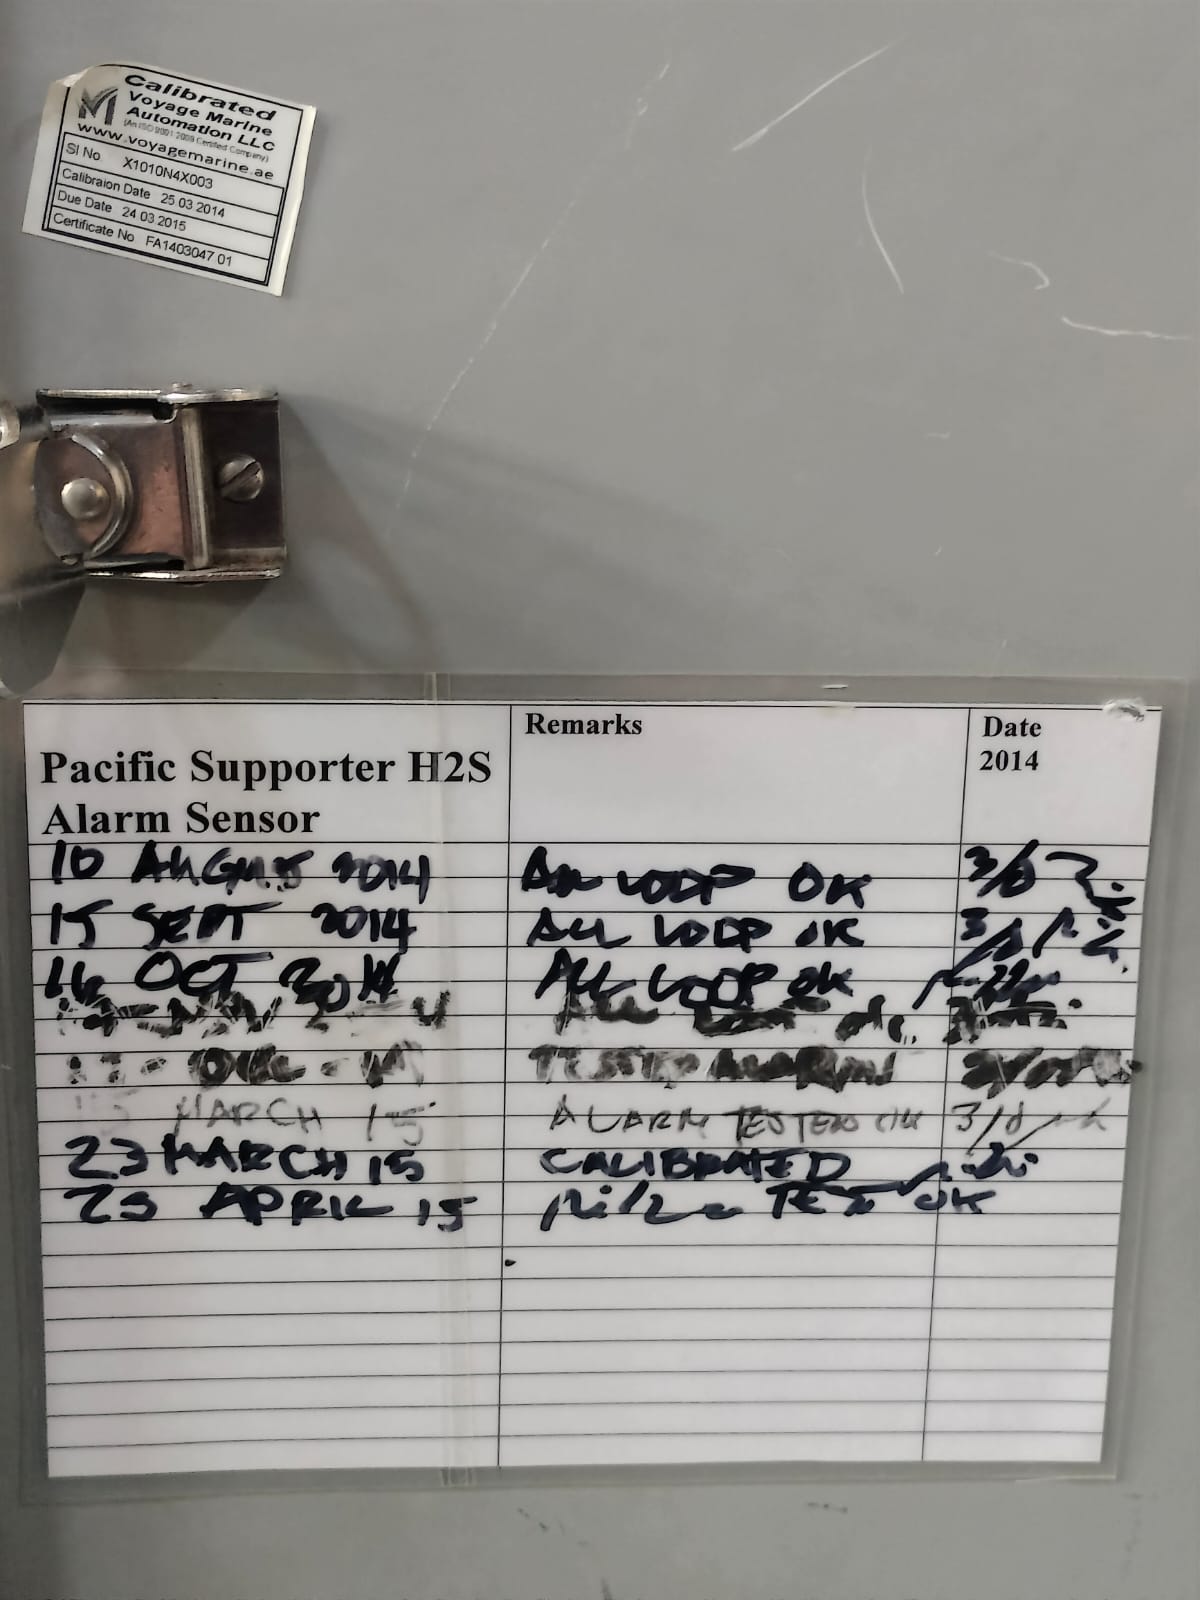 Calibrated
Voyage Marine
Automation LLC
(An ISO 9001 2008 Certified Company)
www.voyagemarine.ae
Sl No X1010N4X003
Calibraion Date 25 03 2014
Due Date 24 03 2015
Certificate No FA1403047 01
Pacific Supporter H2S Alarm Sensor Remarks Date 2014
10 AUGUS 2014 ALL LOOP OK
15 SEPT 2014 ALL LOOP OK
16 OCT 2014 ALL LOOP OK
ALL
TESTED
MARCH 15 ALARM TESTED OK
23 MARCH 15 CALIBRATED
25 APRIL 15 TEST OK